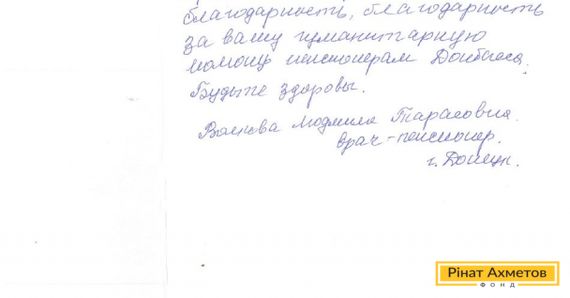 благодарность, благодарность
за вашу гуманитарную
помощь пенсионерам Донбасса.
Будьте здоровы.
Людмила Тарасовна.
врач-пенсионер.
г. Донецк.
Рінат Ахметов
ФОНД